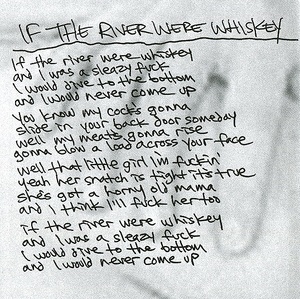 IF THE RIVER WERE WHISKEY
If the river were whiskey
and I was a sleazy fuck
I would dive to the bottom
and I would never come up
You know my cocks gonna
slide in your back door someday
well my meats gonna rise
gonna blow a load across your face
well that little girl I'm fuckin'
yeah her snatch is tight it's true
she's got a horny old mama
and i think i'll fuck her too
if the river were whiskey
and i was a sleazy fuck
I would dive to the bottom
and I would never come up